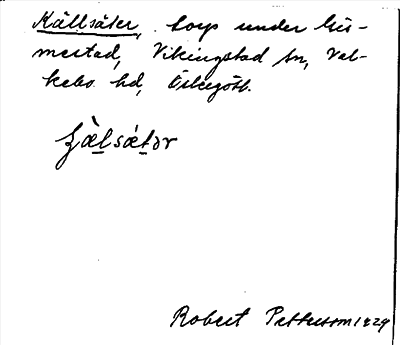 Källsäter, torp under Gis-
mestad, Vikingstad sn, Val-
kebo hd, Östergötl.
Robert Pettersson 1929